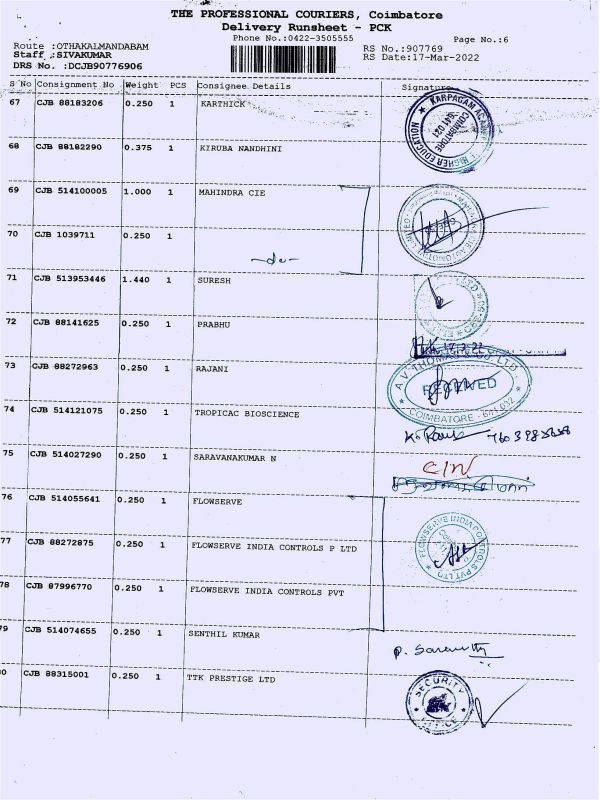 THE PROFESSIONAL COURIERS, Coimbatore
Delivery Runsheet - PCK
Phone No.:0422-3505555
Page No.:6
Route :OTHAKALMANDABAM
Staff :SIVAKUMAR
DRS No. :DCJB90776906
RS No.:907769
RS Date:17-Mar-2022
S No Consignment No Weight PCS Consignee Details Signature
67 CJB 88183206 0.250 1 KARTHICK
KARPAGAM ACA
COIMBATORE
641 021
HIGHER EDUCATION
68 CJB 88182290 0.375 1 KIRUBA NANDHINI
69 CJB 514100005 1.000 1 MAHINDRA CIE
70 CJB 1039711 0.250 1
-do-
71 CJB 513953446 1.440 1 SURESH
72 CJB 88141625 0.250 1 PRABHU
73 CJB 88272963 0.250 1 RAJANI
A.V. THOMAS & CO. LTD.
RECEIVED
COIMBATORE - 641 032
74 CJB 514121075 0.250 1 TROPICAC BIOSCIENCE
75 CJB 514027290 0.250 1 SARAVANAKUMAR N
CIN
76 CJB 514055641 0.250 1 FLOWSERVE
77 CJB 88272875 0.250 1 FLOWSERVE INDIA CONTROLS P LTD
FLOWSERVE INDIA CONTROLS PVT LTD
78 CJB 87996770 0.250 1 FLOWSERVE INDIA CONTROLS PVT
79 CJB 514074655 0.250 1 SENTHIL KUMAR
80 CJB 88315001 0.250 1 TTK PRESTIGE LTD
SECURITY